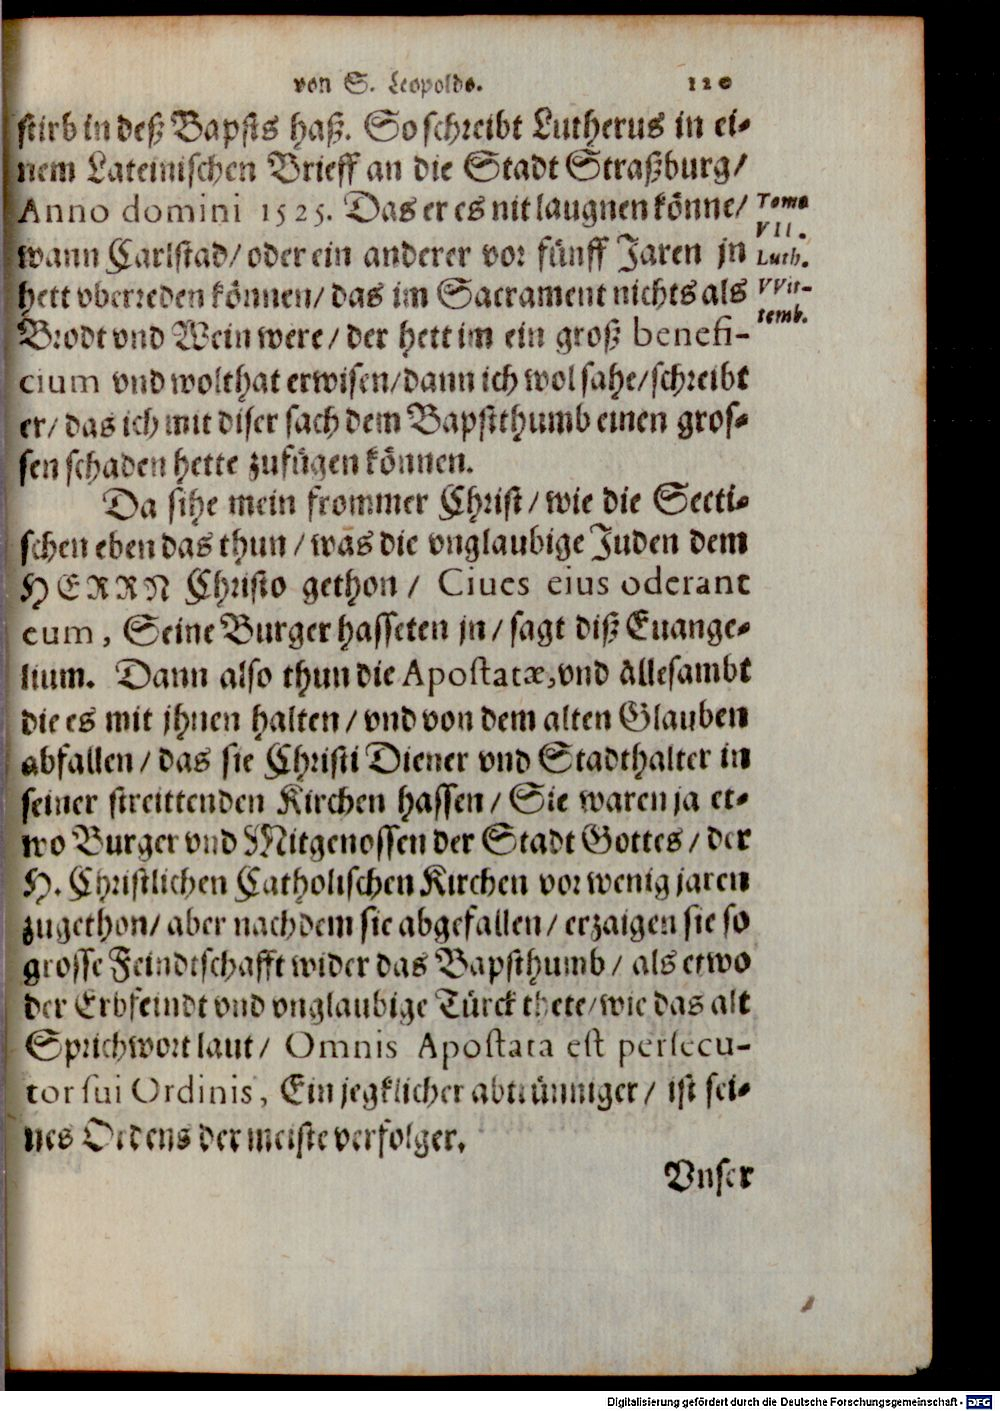 von S. Leopoldo. 120
stirb in deß Bapsts haß. So schreibt Lutherus in ei-
nem Lateinischen Brieff an die Stadt Straßburg/
Anno domini 1525. Das er es nit laugnen könne/
wann Carlstad/ oder ein anderer vor fünff Jaren jn
hett vberreden können/ das im Sacrament nichts als
Brodt vnd Wein were/ der hett im ein groß benefi-
cium vnd wolthat erwisen/ dann ich wol sahe/ schreibt
er/ das ich mit diser sach dem Bapstthumb einen gros-
sen schaden hette zufügen können.
Da sihe mein frommer Christ/ wie die Secti-
schen eben das thun/ was die vnglaubige Juden dem
HERRN Christo gethon/ Ciues eius oderant
eum, Seine Burger hasseten jn/ sagt diß Euange-
lium. Dann also thun die Apostatæ, vnd allesambt
die es mit jhnen halten/ vnd von dem alten Glauben
abfallen/ das sie Christi Diener vnd Stadthalter in
seiner streittenden Kirchen hassen/ Sie waren ja et-
wo Burger vnd Mitgenossen der Stadt Gottes/ der
H. Christlichen Catholischen Kirchen vor wenig jaren
zugethon/ aber nachdem sie abgefallen/ erzaigen sie so
grosse Feindtschafft wider das Bapsthumb/ als etwo
der Erbfeindt vnd vnglaubige Türck thete/ wie das alt
Sprichwort laut/ Omnis Apostata est persecu-
tor sui Ordinis, Ein jegklicher abtrünniger/ ist sei-
nes Ordens der meiste verfolger.
Vnser
Tomo
VII.
Luth.
VVit-
temb.
Digitalisierung gefördert durch die Deutsche Forschungsgemeinschaft - DFG